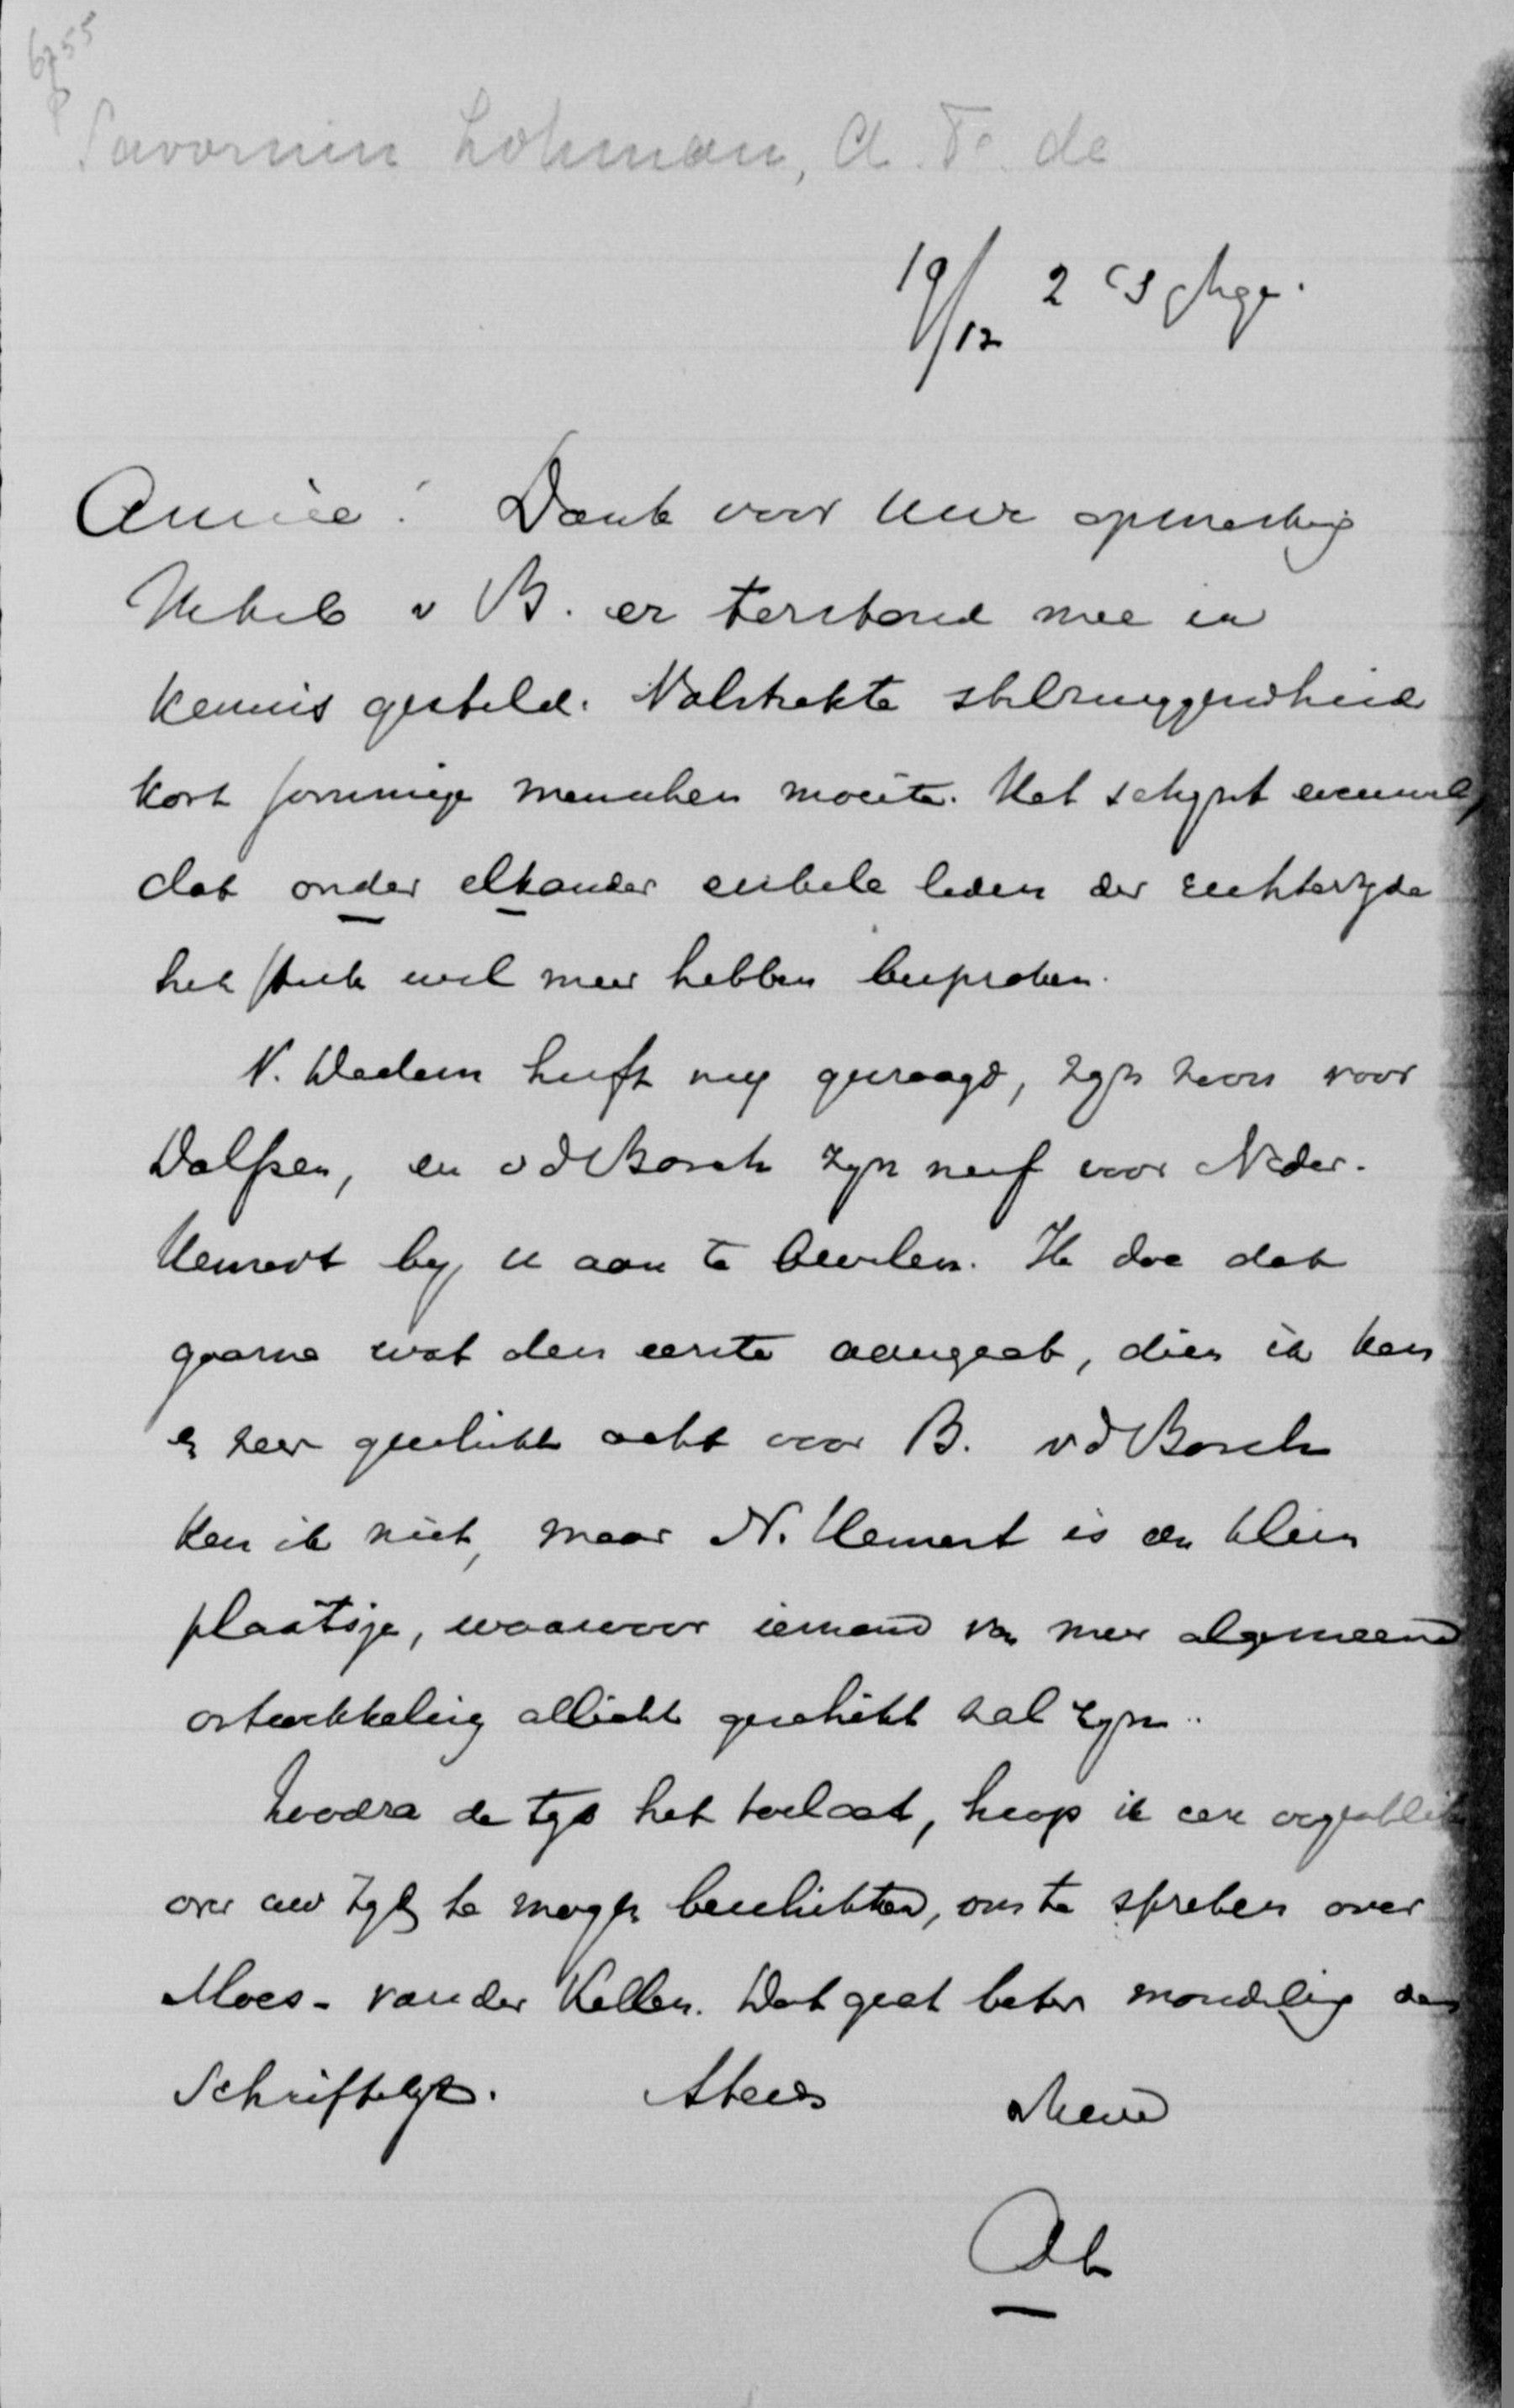 6755
Savornin Lohman, A. F. de
19/12 2
Amice! Dank voor uwe opmerking
Heb v B. er terstond mee in
kennis gesteld. Volstrekte stilzwijgendheid
kost sommige menschen moeite. Het schijnt evenwel,
dat onder elkander enkele leden der rechterzijde
het stuk wel meer hebben besproken.
V. Dedem heeft mij gevraagd, zijn zoon voor
Dalfsen, en v d Bosch zijn neef voor Neder-
Hemert bij u aan te bevelen. Ik doe dat
gaarne wat den eerste aangaat, dien ik ken
en zeer geschikt acht voor B. v d Bosch
ken ik niet, maar N. Hemert is een klein
plaatsje, waarvoor iemand van meer algemeene
ontwikkeling allicht geschikt zal zijn.
Zoodra de tijd het toelaat, hoop ik een oogenblik
over uw tijd te mogen beschikken, om te spreken over
Moes - van der Kellen. Dat gaat beter mondeling dan
schriftelijk. Steeds
AL